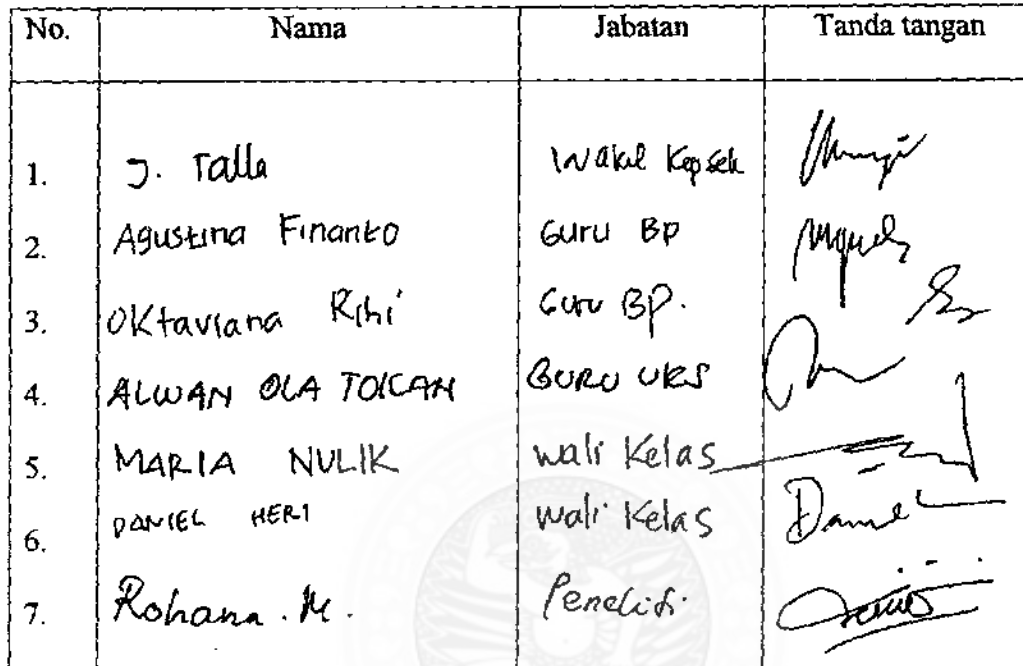 No. Nama Jabatan Tanda tangan
1. J. Talla Wakil Kepsek
2. Agustina Finanto Guru BP
3. Oktaviana Rihi Guru BP.
4. ALWAN OLA TOKAN GURU UKS
5. MARIA NULIK wali Kelas
6. DANIEL HERI wali Kelas Daniel
7. Rohana . M. Peneliti